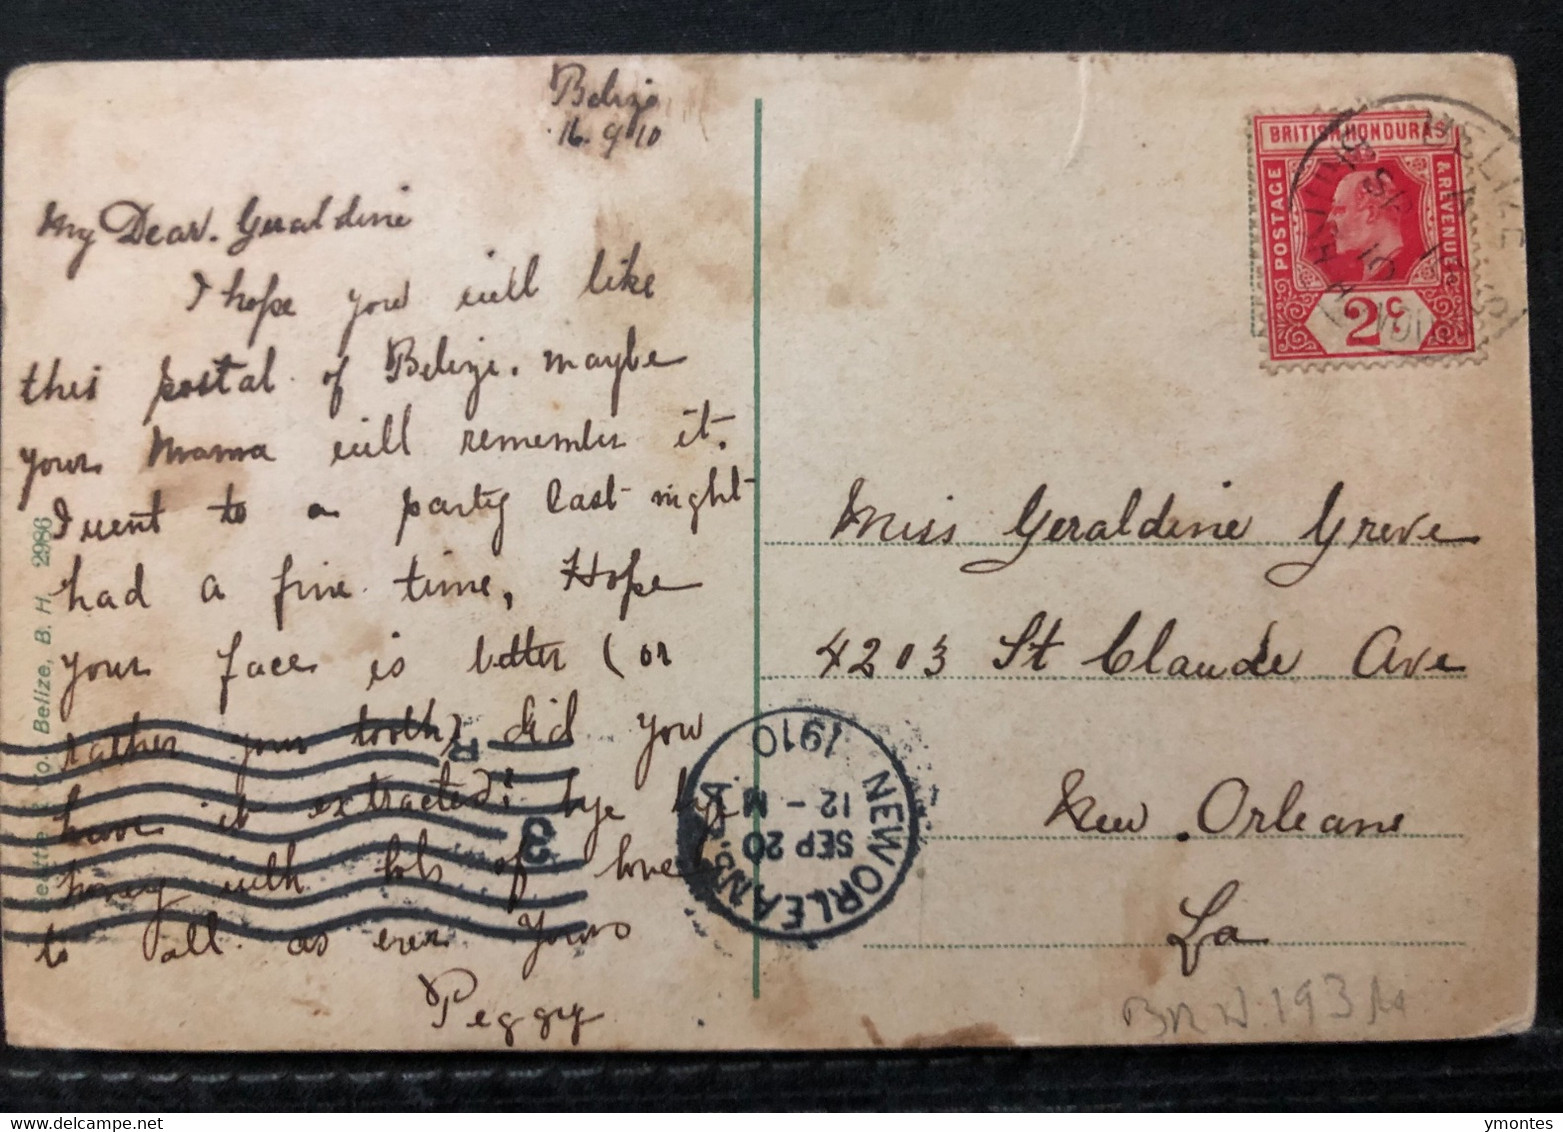 Belize
16.9 10
My Dear. Geraldine
I hope you will like
this postal of Belize. maybe
your Mama will remember it.
I went to a party last night
had a fine time, Hope
your face is better (or
rather your tooth) did you
have it extracted? bye bye
honey with lots of love
to all as ever Yours
Peggy
Belize, B. H. 2986
BRITISH HONDURAS
POSTAGE
& REVENUE
2c
BELIZE
Miss Geraldine Greve
4203 St Claude Ave
New Orleans
La
NEW ORLEANS,
SEP 20
12 - M
1910
R
3
ymontes